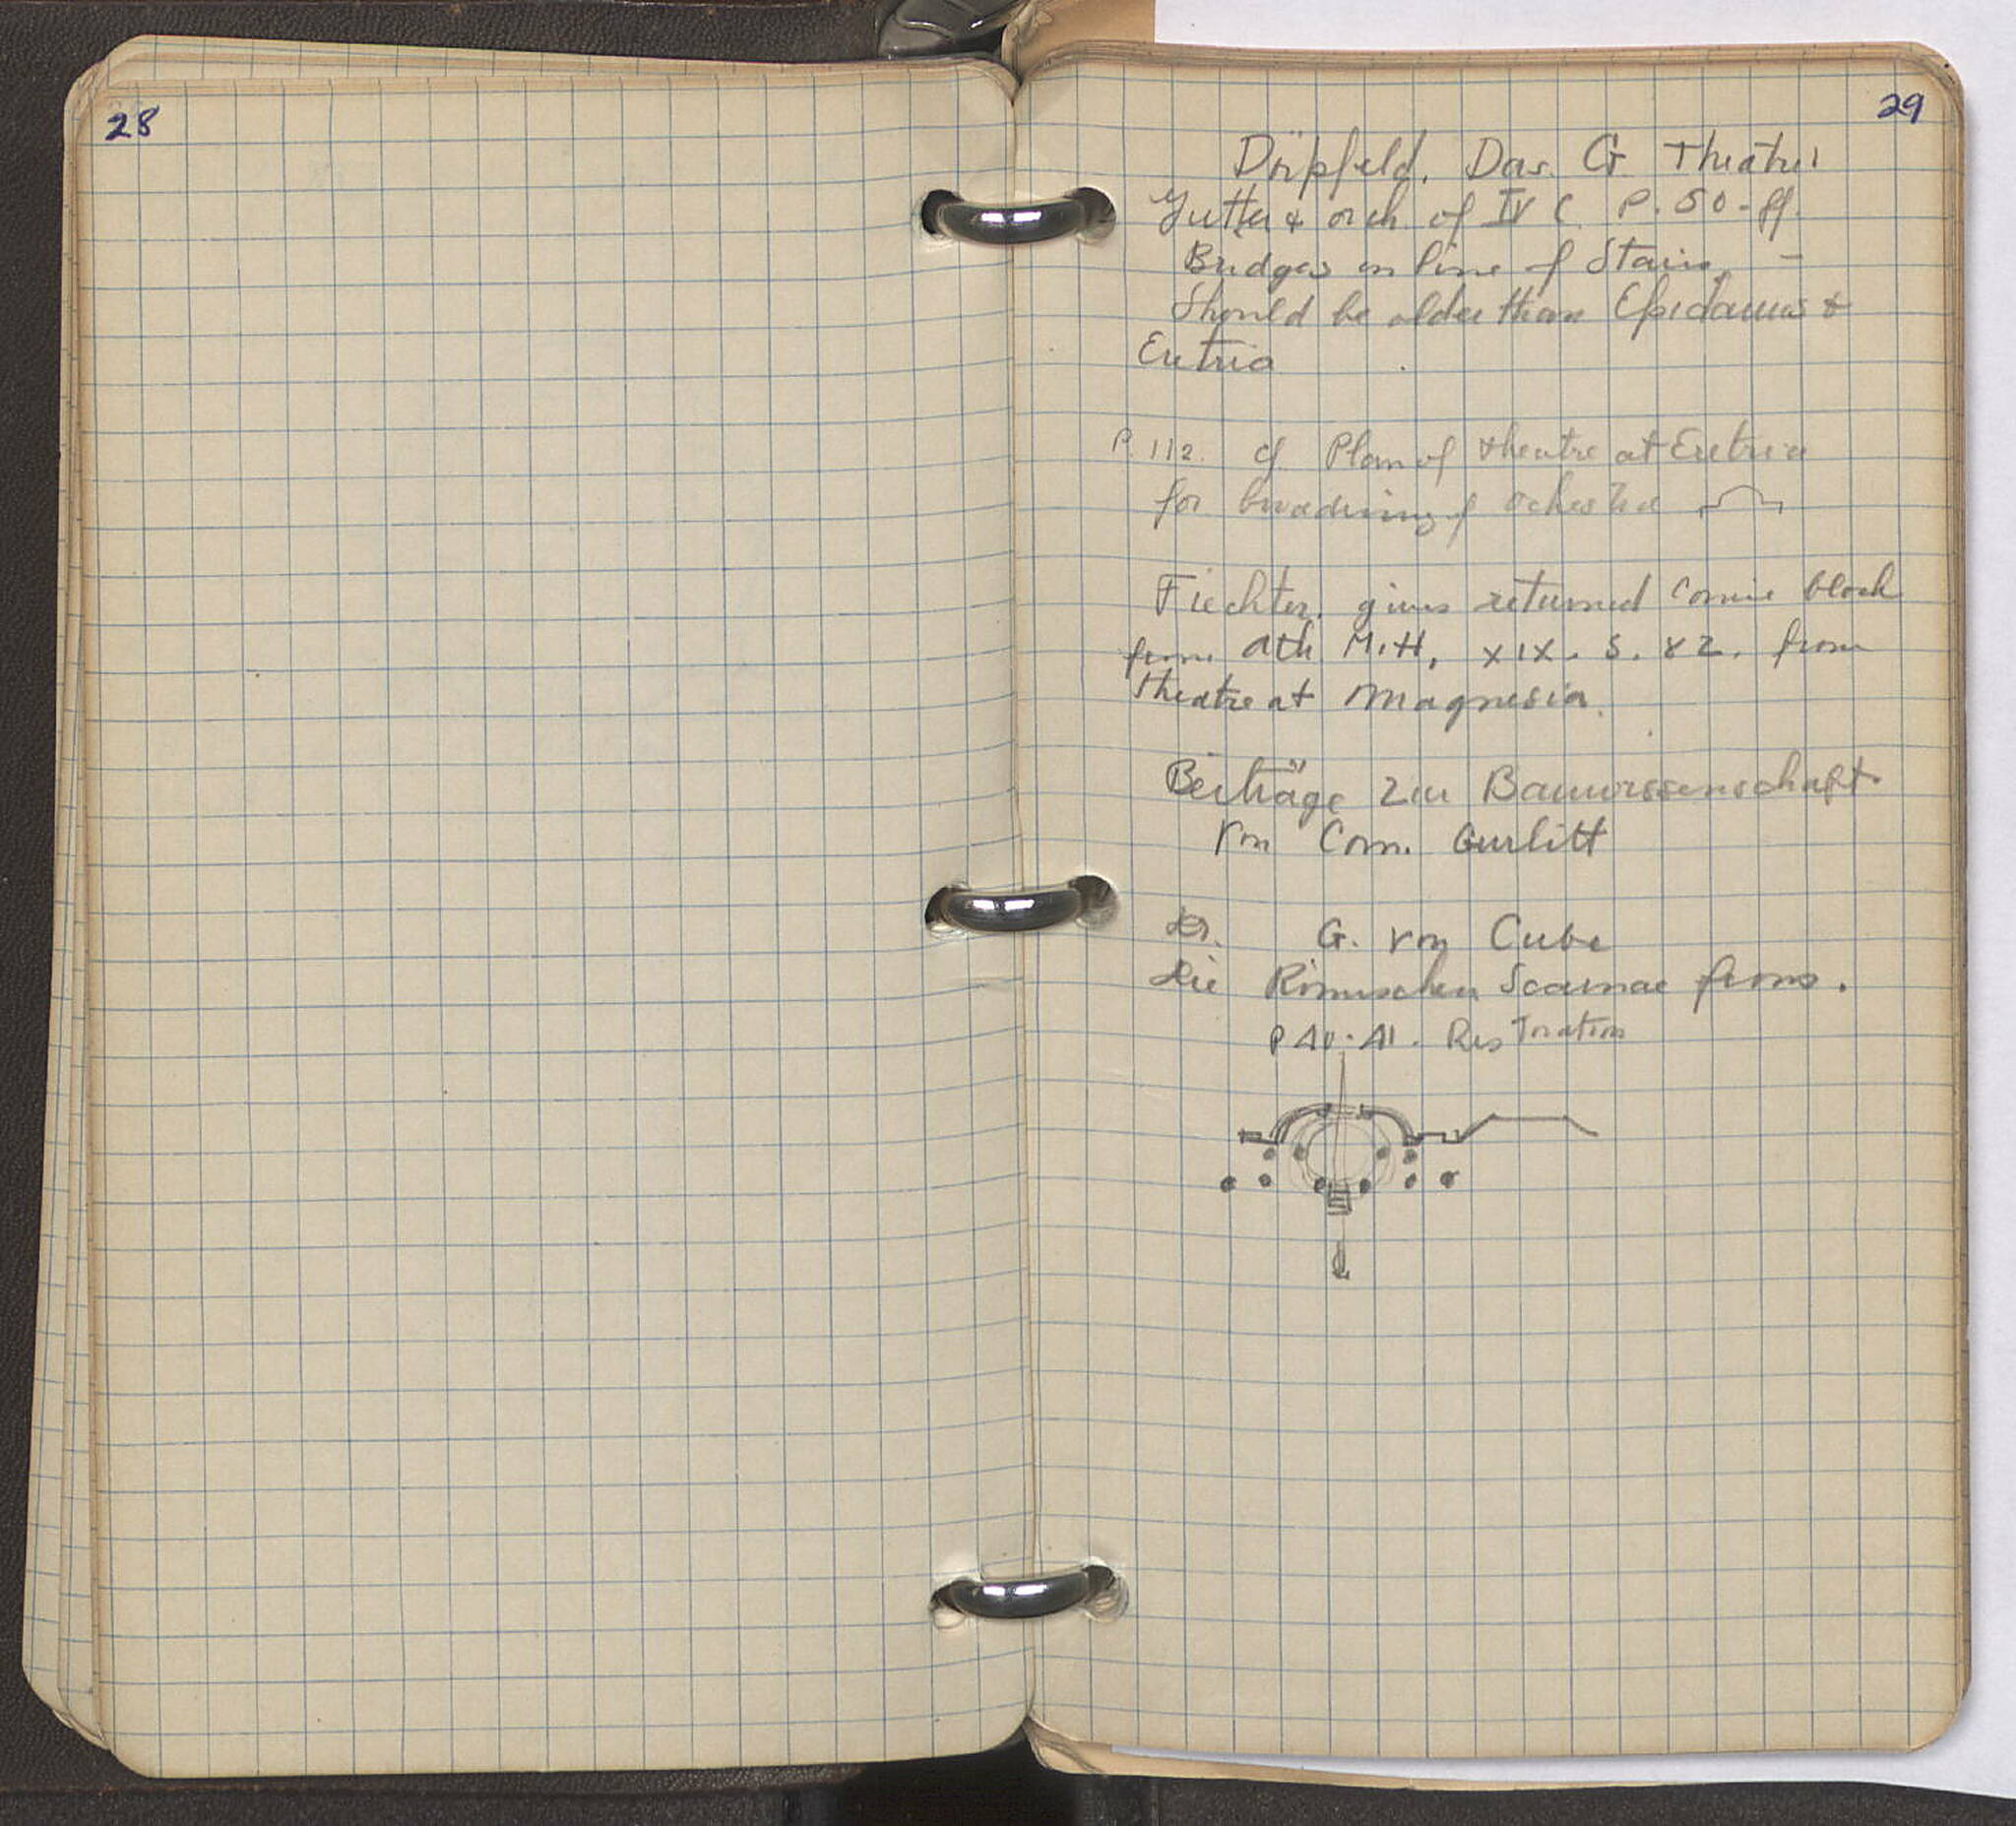 28
29
Dörpfeld. Das. G. Theater
Gutter & orch. of IV C P. 50-ff.
Bridges on line of Stairs, -
Should be older than Epidaurus &
Eretria
P. 112. cf. Plan of theatre at Eretria
for broadening of Ochestra
Fiechter, gives returned cornice block
from Ath Mitt, XIX. S. 82. from
theatre at Magnesia.
Beiträge zur Bauwissenschaft
von Corn. Gurlitt
G. von Cube
Die Römischen Scaenae frons.
P 40-41. Restoration